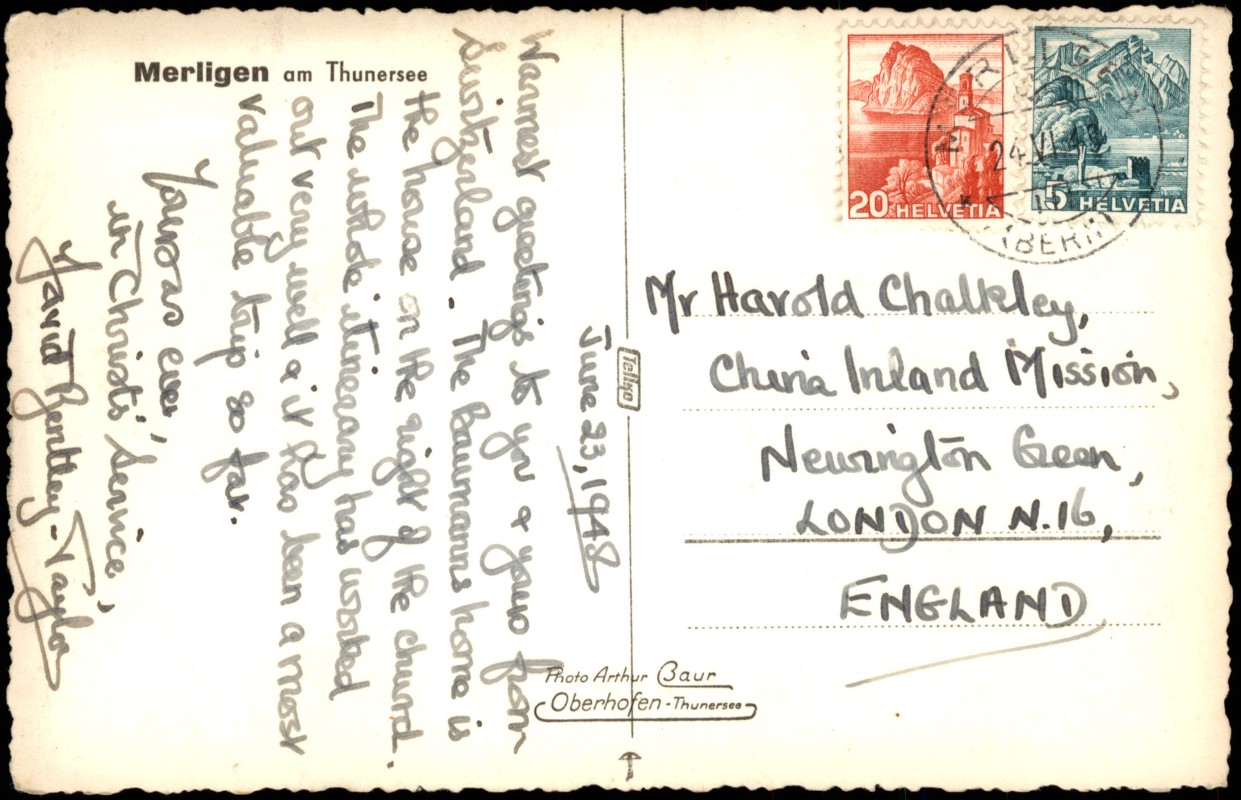 Merligen am Thunersee
June 23, 1948
Warmest greetings to you & yours from
Switzerland. The Baumanns home is
the house on the right of the church.
The whole itinerary has worked
out very well & it has been a most
valuable trip so far.
Yours ever,
in Christ's Service,
David Bentley-Taylor
Tellko
Photo Arthur Baur
Oberhofen-Thunersee
20 HELVETIA
5 HELVETIA
MERLIGEN
24.VI.48
(BERN)
Mr Harold Chalkley,
China Inland Mission,
Newington Green,
LONDON N.16,
ENGLAND